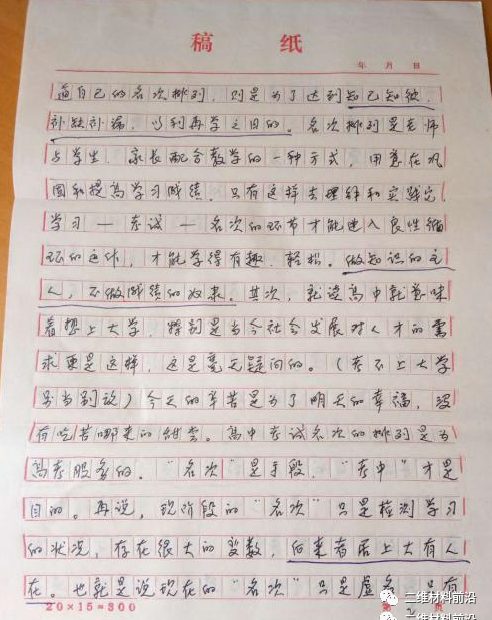 稿 纸
年 月 日
道自己的名次排列，则是为了达到知己知彼，
补缺补漏，以利再学之目的。名次排列是老师
与学生、家长配合教学的一种方式，用意在巩
固和提高学习成绩，只有这样去理解和实践完
学习—考试—名次的环节才能进入良性循
环的运作，才能学得有趣、轻松。做知识的主
人，不做成绩的奴隶。其次，就读高中就意味
着想上大学，特别是当今社会发展对人才的需
求更是这样，这是毫无疑问的。（考不上大学
另当别论）今天的辛苦是为了明天的幸福，没
有吃苦哪来的甜尝。高中考试名次的排列是为
高考服务的。“名次”是手段，“考中”才是
目的。再说，现阶段的“名次”只是检测学习
的状况，存在很大的变数，后来者居上大有人
在。也就是说现在的“名次”只是虚名，只有
20×15=300
第 2 页
二维材料前沿
二维材料前沿